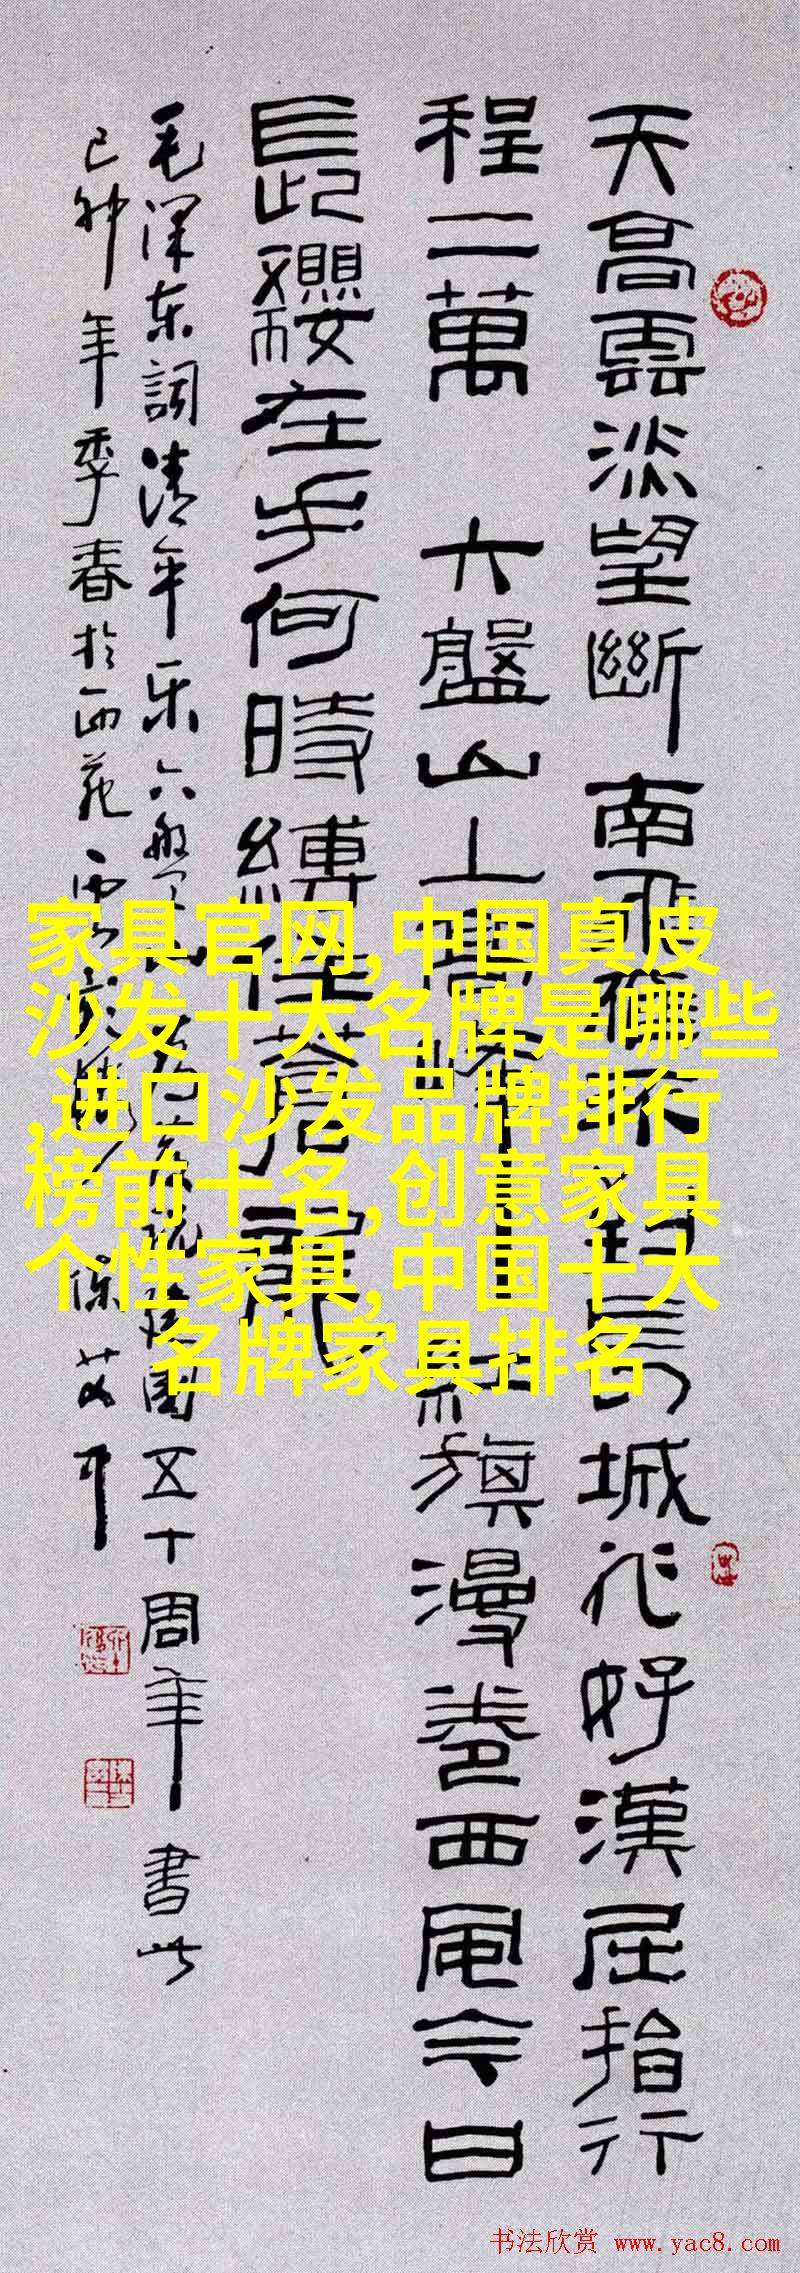 天高雲淡望斷南飛雁不到長城非好漢屈指行
程二萬 六盤山上高峰紅旗漫卷西風今日
長纓在手何時縛住蒼龍
毛澤东詞清平乐六盤山國五十周年書此
己卯年季春於西苑
家具官网,中国真皮
沙发十大名牌是哪些
,进口沙发品牌排行
榜前十名,创意家具
个性家具,中国十大
名牌家具排名
书法欣赏 www.yac8.com